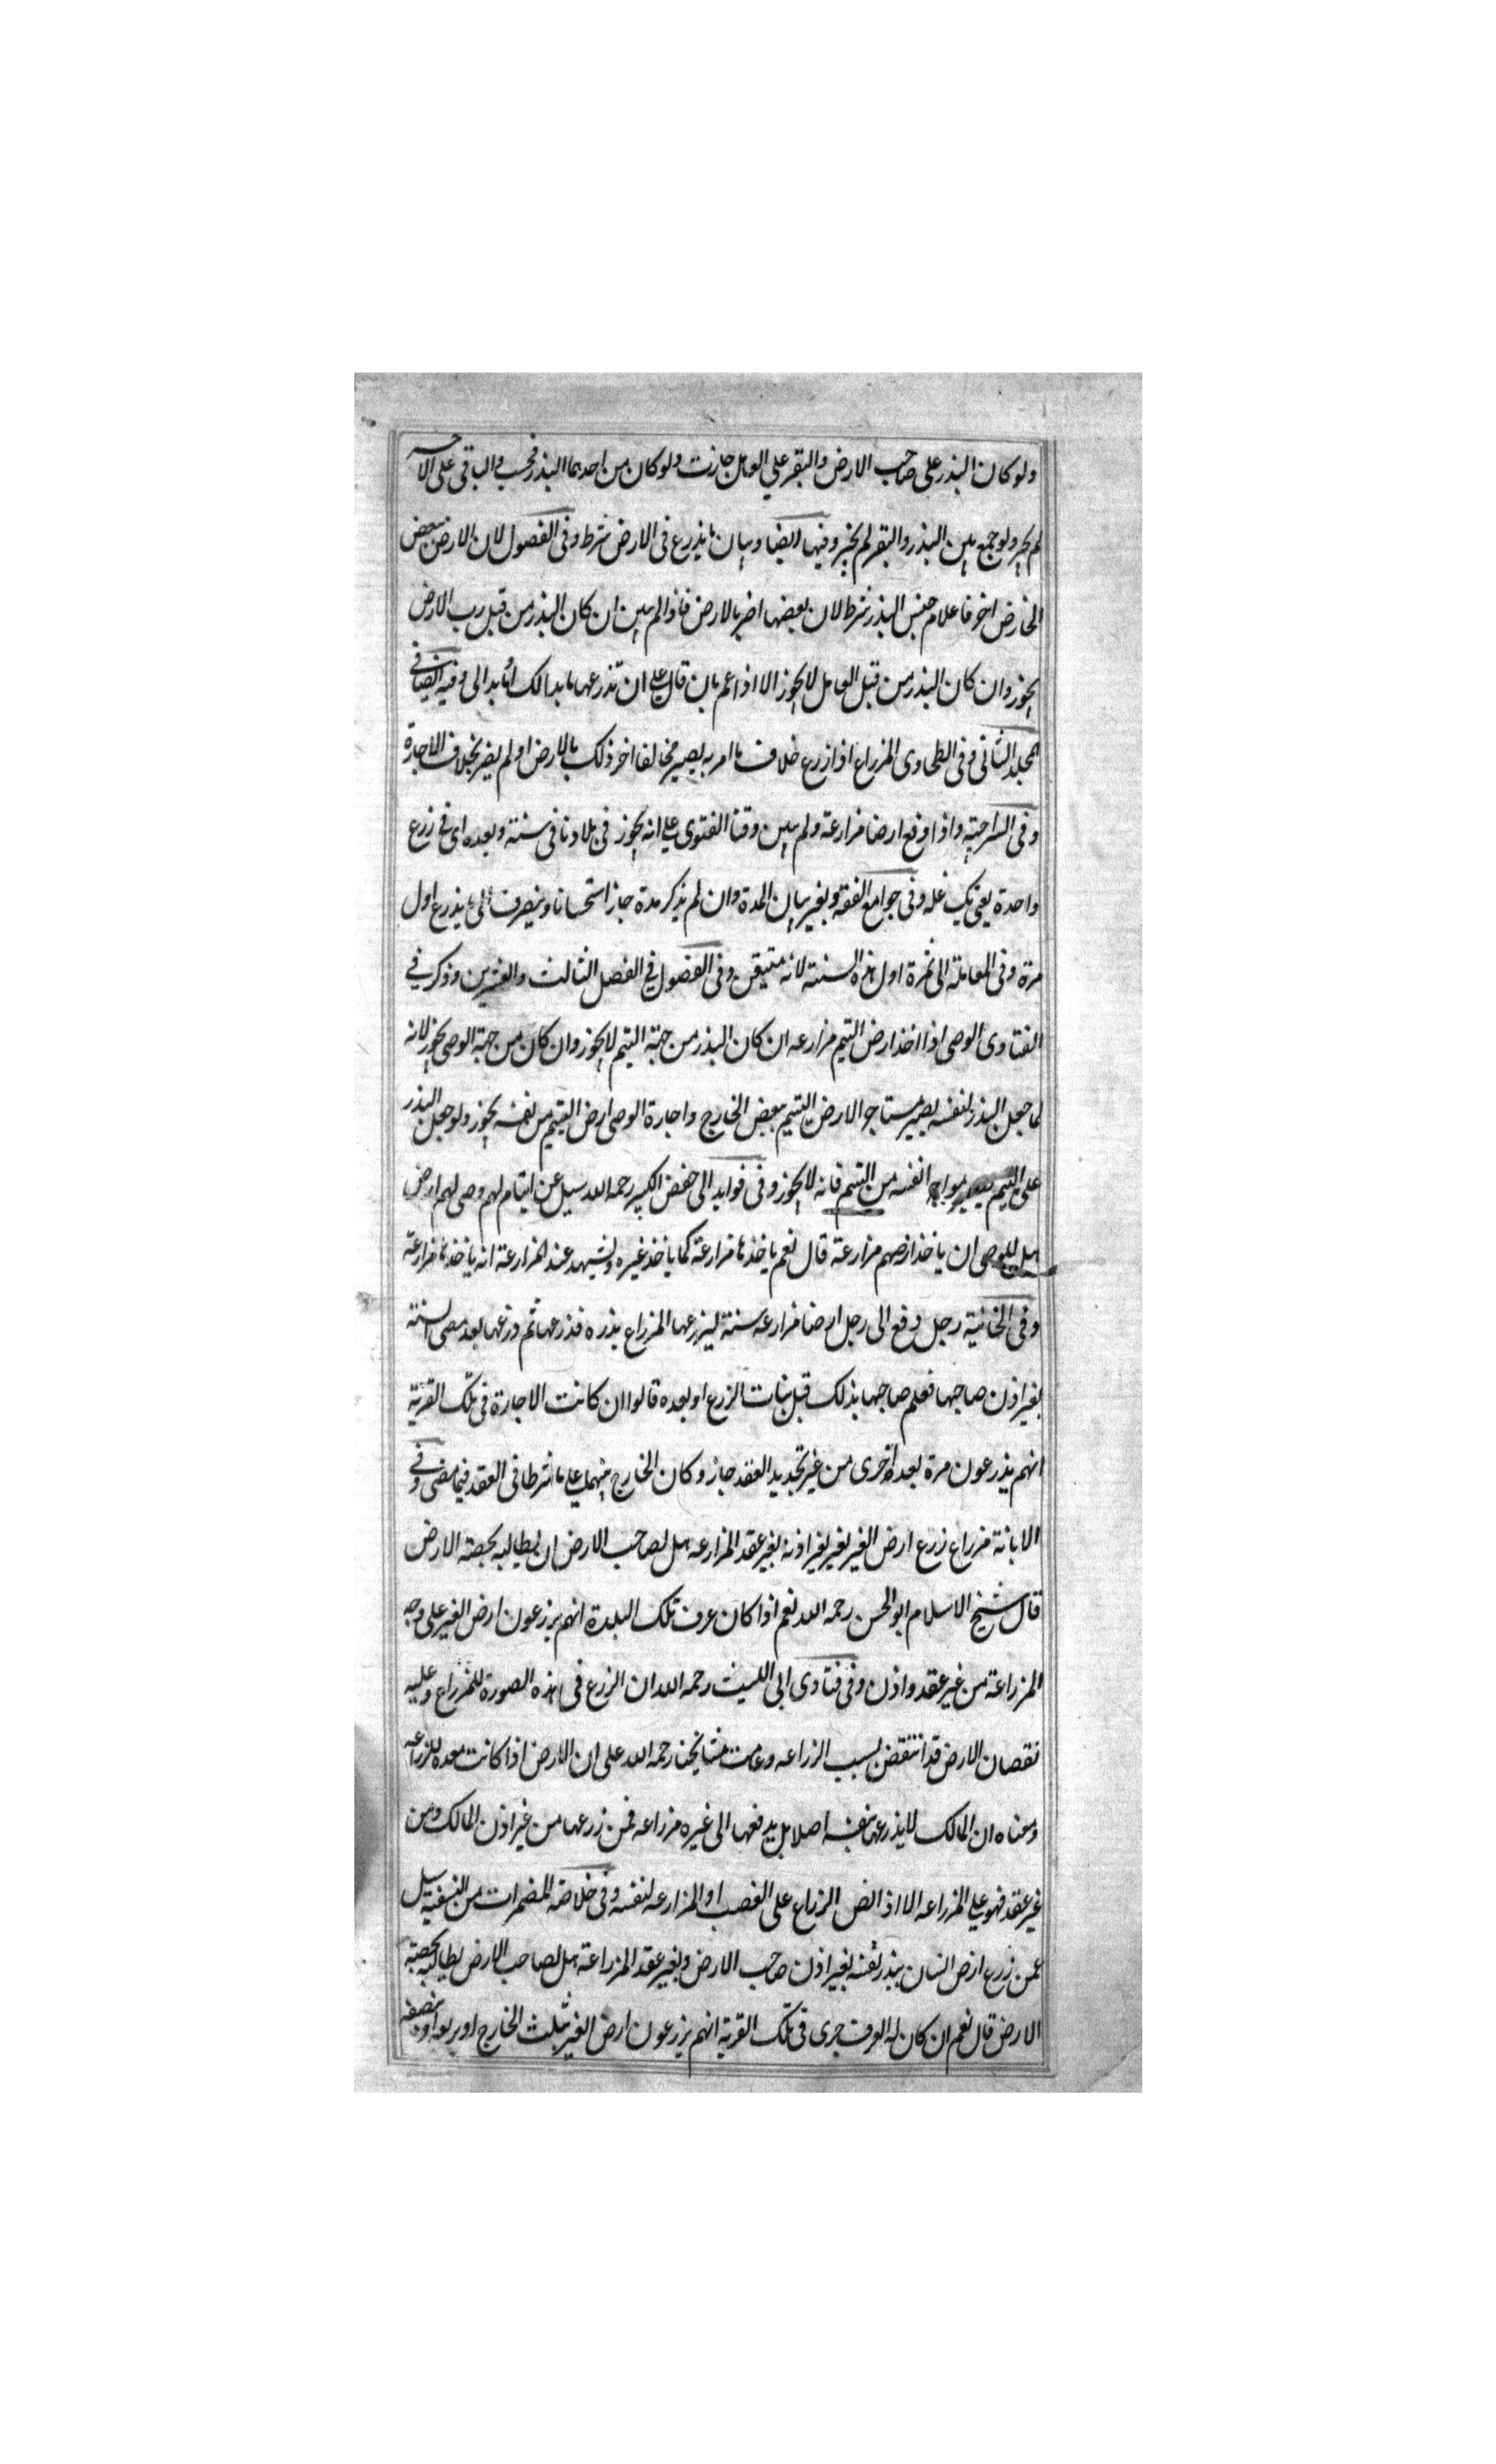 ولو كان البذر على صاحب الارض والبقر على العامل جازت ولو كان من احدهما البذر فحسب والباقى على الآخر
لم يجز ولو جمع بين البذر والبقر لم يجز وفيها ايضا وبيان ما يذرع فى الارض شرط وفى الفصول لان الارض ببعض
الخارض اخر فاعلام جنس البذر شرط لان بعضها اضر بالارض فاذا لم يبين ان كان البذر من قبل رب الارض
يجوز وان كان البذر من قبل العامل لا يجوز الا اذا عمم بان قال على ان تذرعها ما بدا لك او ما بدا لى وفيه ايضا فى
المجلد الثانى وفى الطحاوى المزراع اذا زرع خلاف ما امر به يصير مخالفا اضر ذلك بالارض او لم يضر بخلاف الاجارة
وفى السراجية واذا دفع ارضا مزارعة ولم يبين وقتا الفتوى على انه يجوز فى بلادنا فى سنة وبعده اى فى زرع
واحدة يعنى يك غله وفى جوامع الفقه وبغير بيان المدة وان لم يذكر مدة جاز استحسانا وينصرف الى ما يذرع اول
مرة وفى المعاملة الى ثمرة اول هذه السنة لانه متيقن وفى الفصول فى الفصل الثالث والعشرين وذكر فى
الفتاوى الوصى اذا اخذ ارض اليتيم مزارعه ان كان البذر من جهة اليتيم لا يجوز وان كان من جهة الوصى يجوز لانه
لما جعل البذر لنفسه يصير مستاجر الارض اليتيم ببعض الخارج واجارة الوصى ارض اليتيم من نفسه يجوز ولو جعل البذر
على اليتيم يصير مواجر انفسه من اليتيم فانه لا يجوز وفى فوايد ابى حفص الكبير رحمه الله سيل عن ايتام لهم وصى لهم ارض
هل للوصى ان ياخذ ارضهم مزارعة قال نعم ياخذها مزارعة كما ياخذ غيره ويشهد عند المزارعة انه ياخذها مزارعة
وفى الخانية رجل دفع الى رجل ارضا مزارعه سنة ليزرعها المزراع ببذره فذرعها ثم ذرعها بعد مضى السنة
بغير اذن صاحبها فعلم صاحبها بذلك قبل نبات الزرع او بعده قالوا ان كانت الاجارة فى تلك القرية
انهم يذرعون مرة بعد اخرى من غير تجديد العقد جاز وكان الخارج بينهما على ما شرطا فى العقد فيما مضى وفى
الابانة مزراع زرع ارض الغير بغير اذنه بغير عقد المزارعه هل لصاحب الارض ان يطالبه بحصته الارض
قال شيخ الاسلام ابو الحسن رحمه الله نعم اذا كان عرف تلك البلدة انهم يزرعون ارض الغير على وجه
المزراعة من غير عقد واذن وفى فتاوى ابى الليث رحمه الله ان الزرع فى هذه الصورة للمزراع وعليه
نقصان الارض قد انتقض بسبب الزراعه وعامت مشايخنا رحمه الله على ان الارض اذا كانت معده للزراعه
ومعناه ان المالك لا يذرعها بنفسه اصلا بل يدفعها الى غيره مزراعه فمن زرعها من غير اذن المالك ومن
غير عقد فهو على المزراعه الا اذا نص الزراع على الغصب او المزارعه لنفسه وفى خلاصة المضمرات من النسفية سيل
عمن زرع ارض انسان ببذر نفسه بغير اذن صاحب الارض وبغير عقد المزراعة هل لصاحب الارض يطالبه بحصته
الارض قال نعم ان كان له العرف جرى فى تلك القرية انهم يزرعون ارض الغير بثلث الخارج او بربعه او نصفه